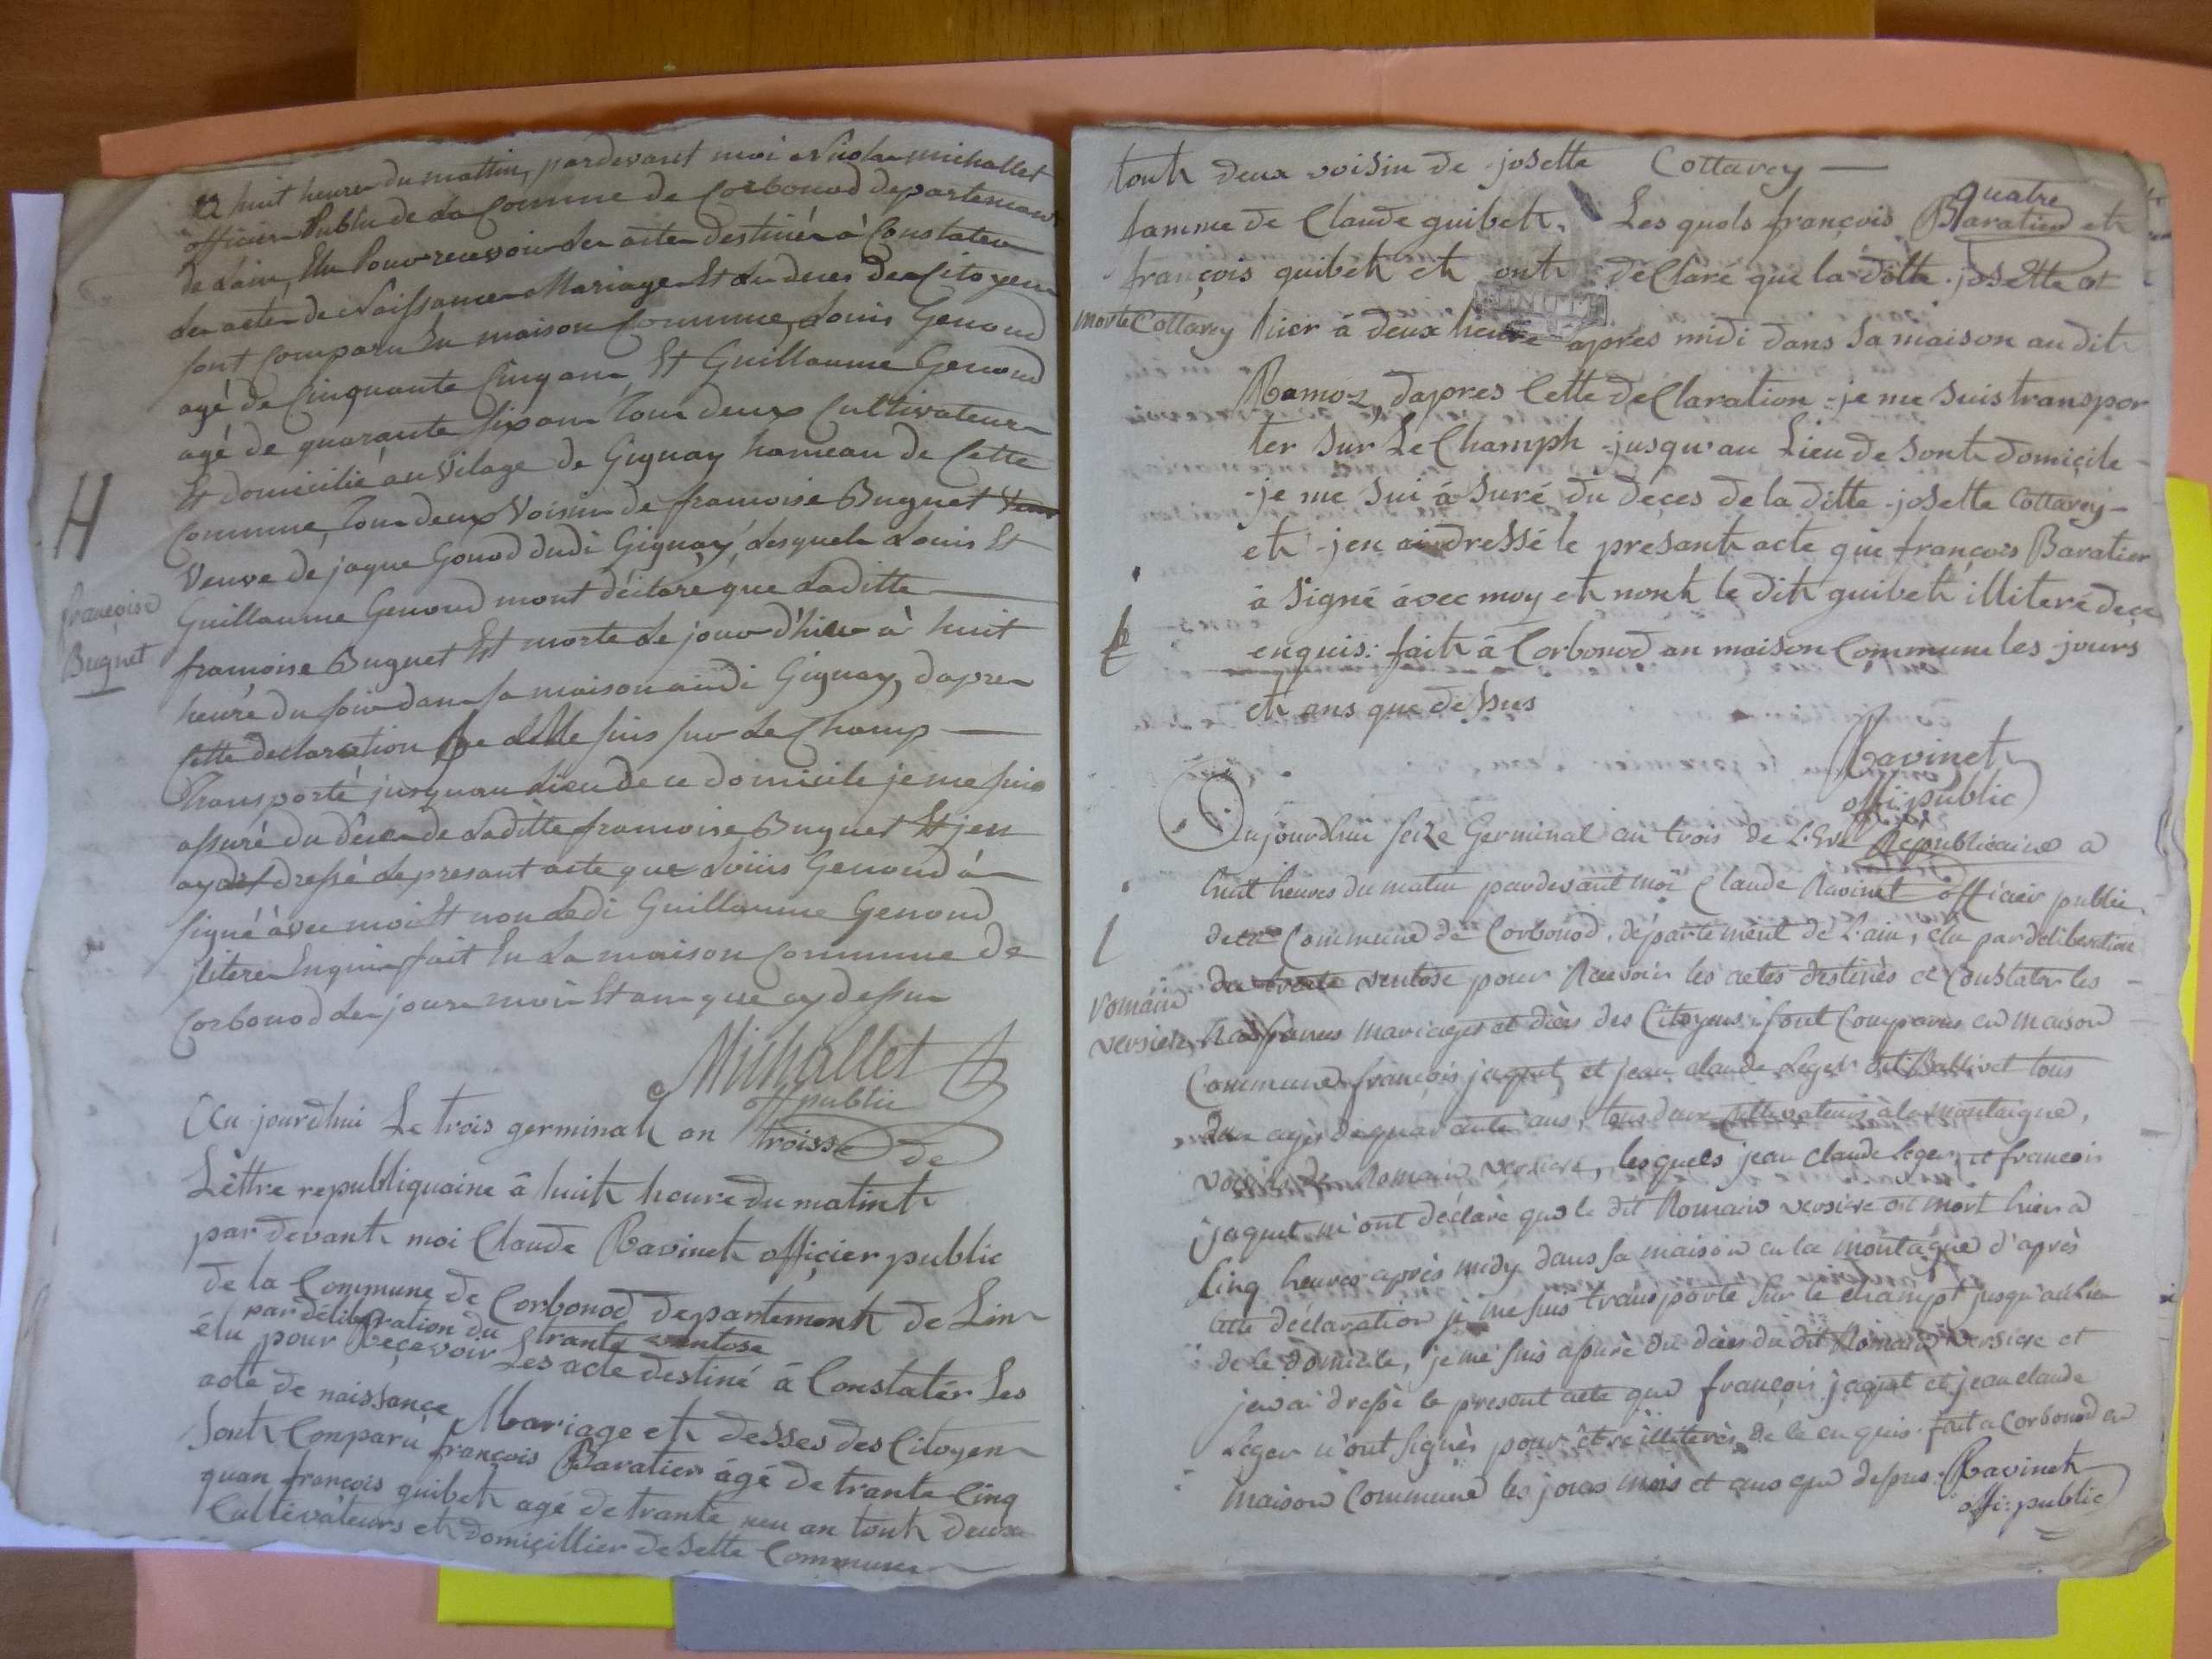 a huit heure du mattin, pardevant moi Nicolas michallet
officier Public de La Commune de Corbonod departemant
de Lain, Elu Pour recevoir Les actes destinés à Constater
Les actes de Naissance Mariage Et Du deces des Citoyens
sont Comparu En maison Commune, Louis Genoud
agé de Cinquante Cinq ans Et Guillaume Genoud
agé de quarante six ans Tous deux Cultivateurs
Et domicilié au vilage de Gignay hameau de Cette
Commune, Tous deux Voisin de francoise Buguet
Veuve de jaque Gonod dudi Gignay, Lesquels Louis Et
Guillaume Genoud mont déclaré que Laditte
francoise Buguet Est morte Le jour d'hier à huit
heure du soir dans sa maison audi Gignay, dapres
Cette declaration suis sur Le Champ
Transporté jusquau Lieu de ce domicile je me suis
assuré du déces de Laditte francoise Buguet Et jen
ay dressé Le presant acte que Louis Genoud à
signé àvec moi Et non Ledi Guillaume Genoud
jlitere Enquis fait En La maison Commune de
Corbonod Les jours mois Et an que cy dessus
Michallet
off public
françoise
Buguet
Au jourdhui Le trois germinal an troisse de
Lèttre republiquaine â huit heure du matint
par devant moi Claude Ravinet officier public
de la Commune de Corbonod departement de Lin
par délibération du trante ventose
élu pour Reçevoir Les acte destiné â Constatér Les
acte de naissance Mariage et desses des Citoyen
Sont Comparu françois Baratier âgé de trante Cinq
quan françois guibet agé de trante neu an tout deux
Cultivâteurs et domiçillier de Sette Commune
tout deux voisin de josette Cottavey
famme de Claude guibet. Les quels françois Baratier et
quatre
françois guibet et ont declaré que la ditte josette et
morte Cottavey hier â deux heure apres midi dans Sa maison au dit
Ramoz, dapres Cette declaration je me Suis transpor
ter Sur Le Champh jusqu'au Lieu de Sont domiçile
je me Sui â Suré du déçes de la ditte josette Cottavey
et jen ai dressé le presant acte que françois Baratier
â Signé âvec moy et nont le dit guibet illiteré dece
enquis: fait â Corbonod an maison Commune les jours
et ans que dessus
Ravinet
offi: public
Aujourdhui seize Germinal an trois de L'Ere Républicaine a
huit heures du matin pardevant moi Claude Ravinet officier public
de la Commune de Corbonod, département de L'ain, elu par deliberation
du trente ventose pour Recevoir les actes destinés a Constater les
Naissances mariages et décès des Citoyens: sont Comparus en maison
Commune françois jaquet, et jean claude Leger dit Ballivet tous
deux agés de quarante ans, tous deux Cultivateurs à la montaigne,
voisins de Romain versiere, lesquels jean claude leger, et francois
jaquet m'ont déclaré que le dit Romain versiere est mort hier a
Cinq heures après midy dans sa maison en la montagne d'après
Cette déclaration je me suis transporté sur le champt jusqu'au lieu
de le domicile, je me suis assuré du décès du dit Romain versiere et
jen ai dressé le present acte que françois jaquet et jean claude
Leger n'ont signés pour être illiterés de le enquis. fait a Corbonod en
maison Commune les jours mois et ans que dessus. Ravinet
offi: public
Romain
versiere